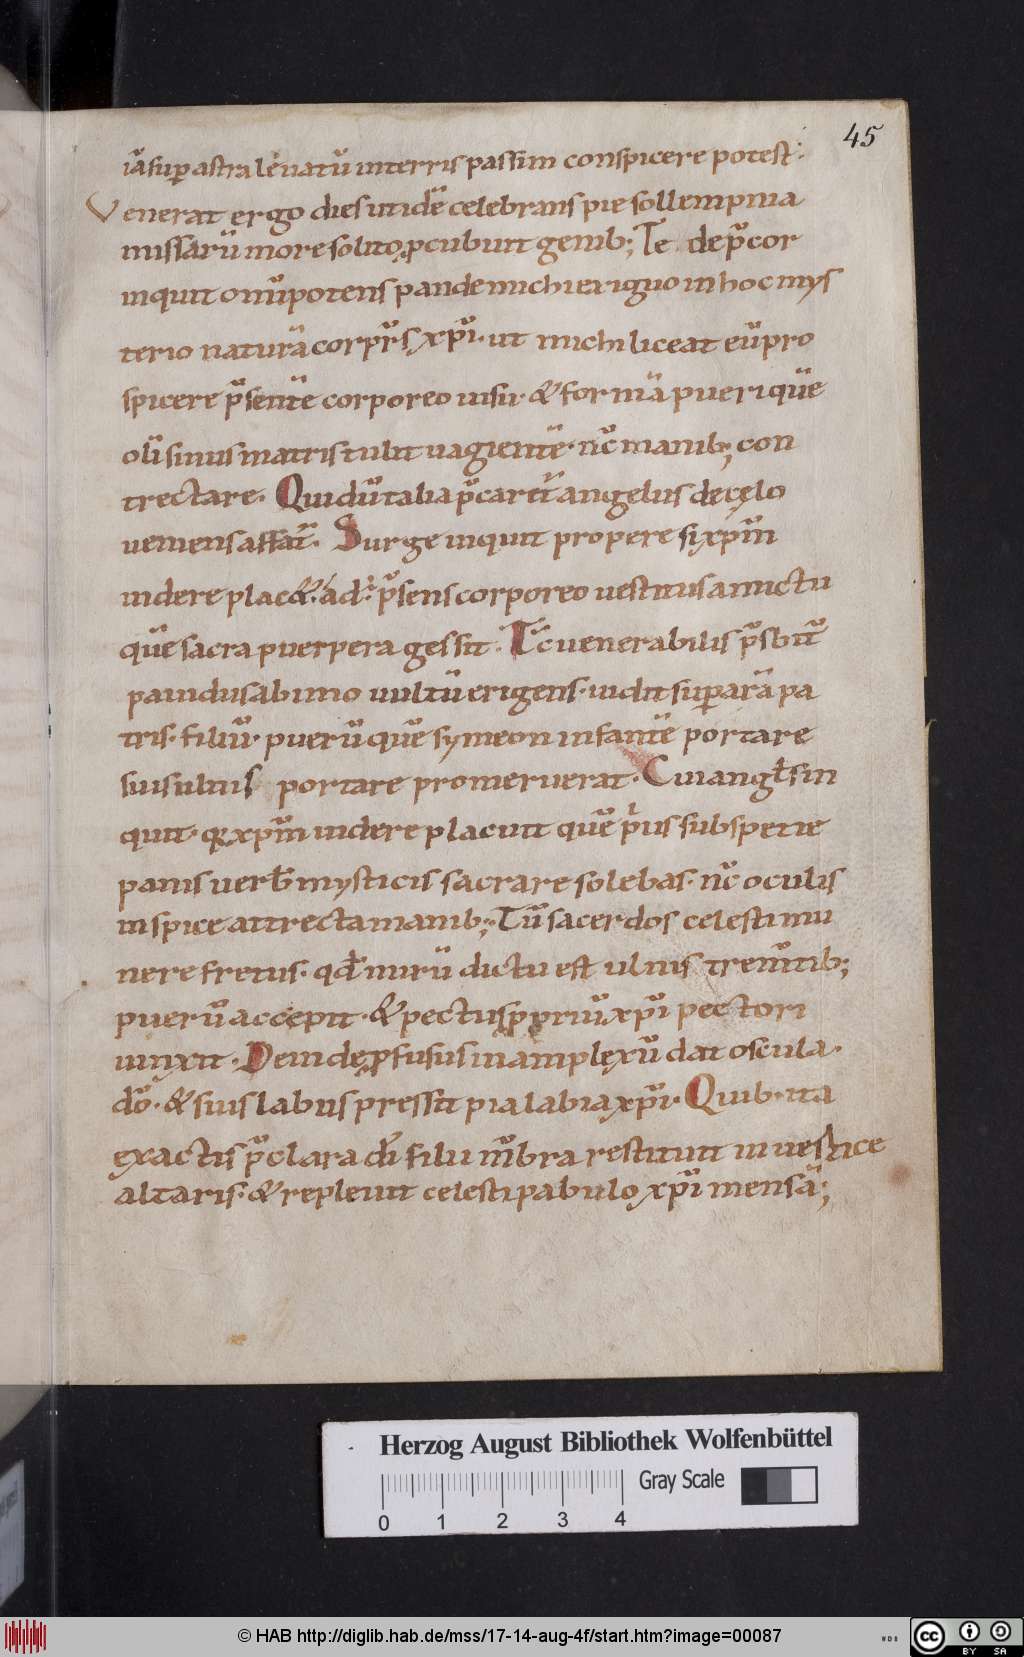 45
iā sup astra leuatū in terris passim conspicere potest.
Venerat ergo dies ut idē celebrans pie sollempnia
missarū more solito pcubuit genib; Te dep̄cor
inquit om̄ipotens pande michi exiguo in hoc mys
terio naturā corpr̄s xp̄i. ut michi liceat eū pro
spicere p̄sentē corporeo uisu. & formā pueri quē
oli sinus matris tulit uagientē. nc̄ manib; con
trectare. Qui dū talia p̄cart̄ angelus de cęlo
ueniens affat̄. Surge inquit propere si xp̄m
uidere plac&. ad. p̄sens corporeo uestitus amictu
quē sacra puerpera gessit. Tc̄ uenerabilis p̄sbit̄
pauidus ab imo uultū erigens. uidit sup arā pa
tris. filiū. puerū quē symeon infantē portare
suis ulnis portare promeruerat. Cui angl̄s in
quit. q̄ xp̄m uidere placuit quē p̄us sub spetie
panis uerb̄ mysticis sacrare solebas. nc̄ oculis
inspice attrecta manib; Tū sacerdos celesti mu
nere fretus. qd̄ mirū dictu est ulnis trem̄tib;
puerū accepit. & pectus ppriū xp̄i pectori
iunxit. Deinde pfusus in amplęxū dat oscula.
dō. & suis labiis pressit pia labia xp̄i. Quib. ita
exactis p̄clara dī filii m̄bra restituit in uertice
altaris. & repleuit celesti pabulo xp̄i mensā;
Herzog August Bibliothek Wolfenbüttel
Gray Scale
0 1 2 3 4
© HAB http://diglib.hab.de/mss/17-14-aug-4f/start.htm?image=00087
WDB
cc BY SA